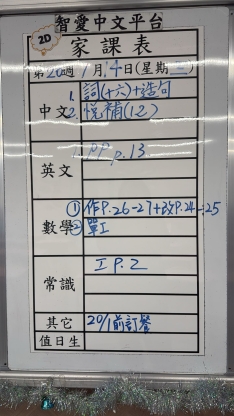 2D
智愛中文平台
家課表
第20週1月14日(星期三)
中文
1. 詞(十六)+造句
2. 悅補(12)
英文
PP p.13
數學
① 作P.26-27+
② 單工
常識
工 P.2
其它
20/1前訂餐
值日生